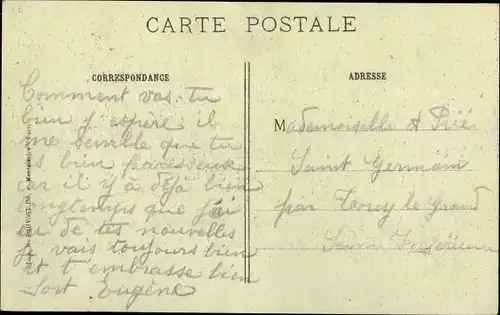 CARTE POSTALE
CORRESPONDANCE
ADRESSE
Comment vas-tu
bien j'espère il
me semble que tu
s bien paresseux
car il y a déjà bien
ngtemps que j'ai
eu de tes nouvelles
je vais toujours bien
et t'embrasse bien
fort Eugène
Mademoiselle
Saint Germain
par Torcy le Grand
Seine Inférieure